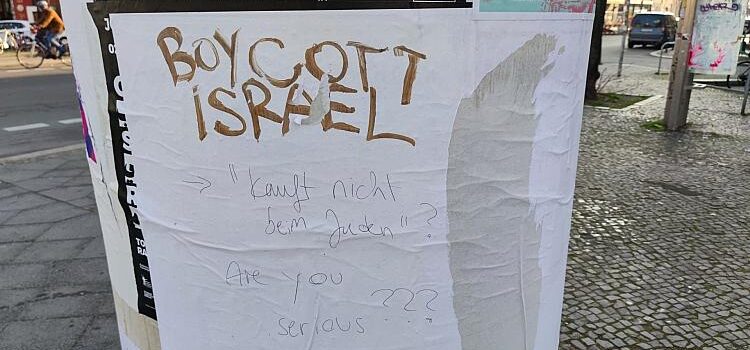 BOYCOTT
ISRAEL
→ "Kauft nicht
beim Juden"?
Are you
serious ???